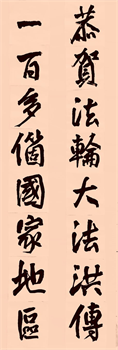 恭賀法輪大法洪傳
一百多個國家地區